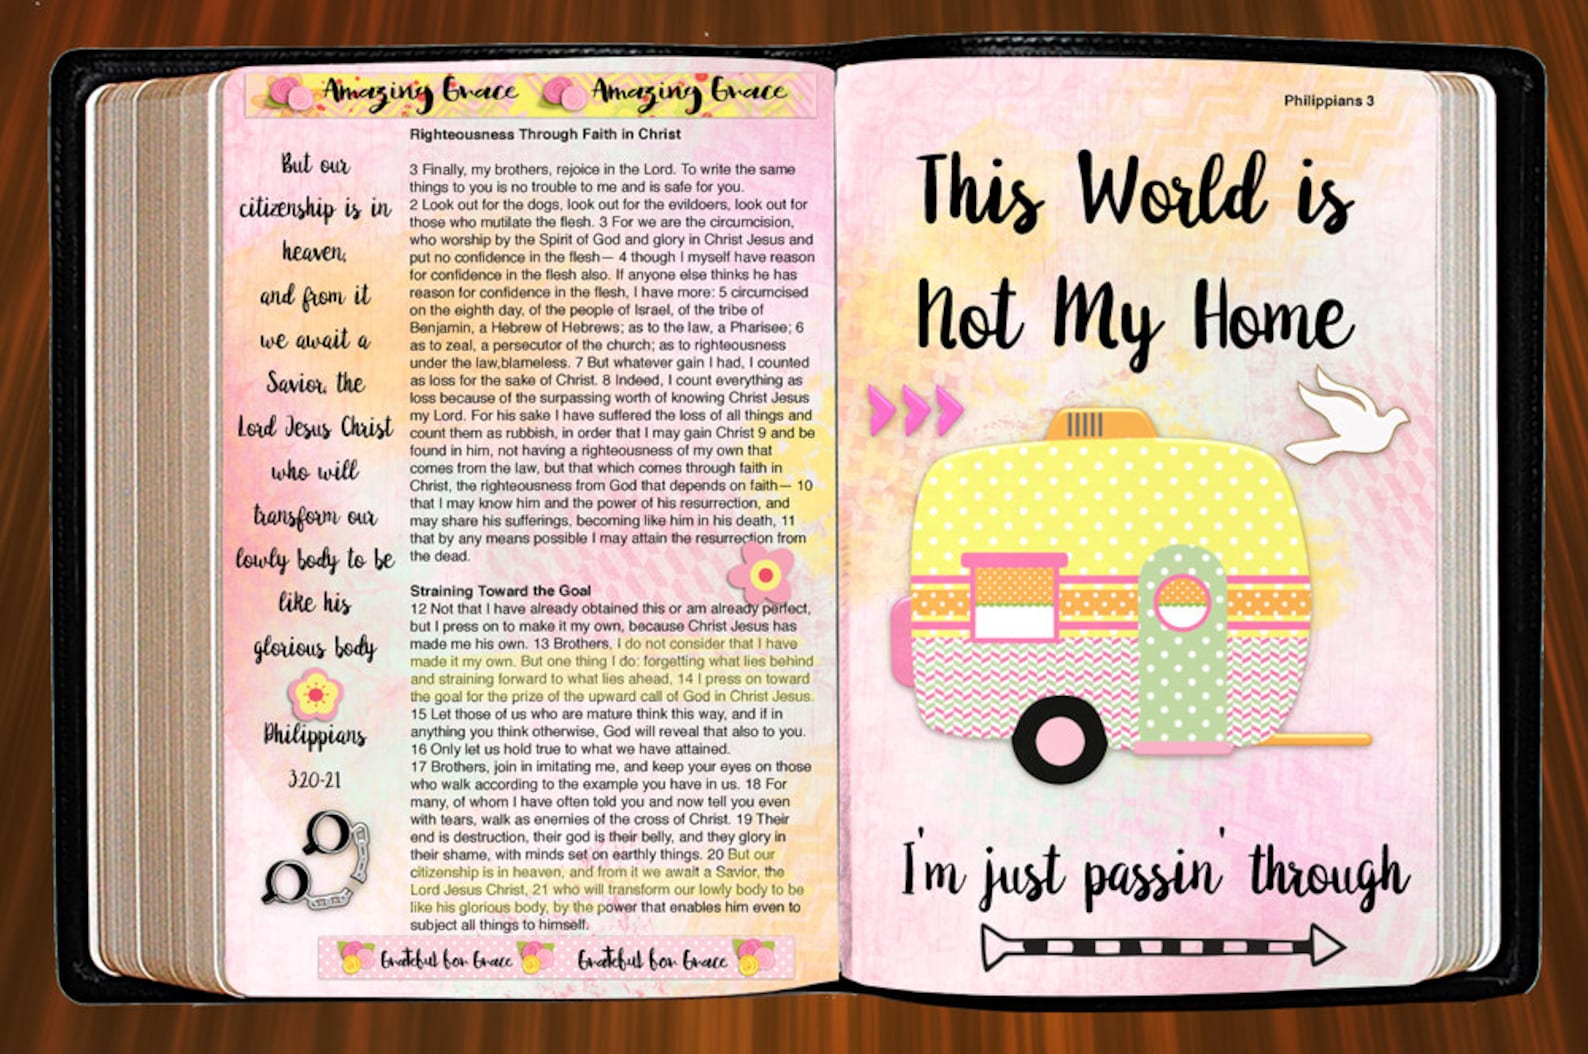 Amazing Grace Amazing Grace
But our
citizenship is in
heaven,
and from it
we await a
Savior, the
Lord Jesus Christ
who will
transform our
lowly body to be
like his
glorious body
Philippians
3:20-21
Righteousness Through Faith in Christ
3 Finally, my brothers, rejoice in the Lord. To write the same
things to you is no trouble to me and is safe for you.
2 Look out for the dogs, look out for the evildoers, look out for
those who mutilate the flesh. 3 For we are the circumcision,
who worship by the Spirit of God and glory in Christ Jesus and
put no confidence in the flesh— 4 though I myself have reason
for confidence in the flesh also. If anyone else thinks he has
reason for confidence in the flesh, I have more: 5 circumcised
on the eighth day, of the people of Israel, of the tribe of
Benjamin, a Hebrew of Hebrews; as to the law, a Pharisee; 6
as to zeal, a persecutor of the church; as to righteousness
under the law,blameless. 7 But whatever gain I had, I counted
as loss for the sake of Christ. 8 Indeed, I count everything as
loss because of the surpassing worth of knowing Christ Jesus
my Lord. For his sake I have suffered the loss of all things and
count them as rubbish, in order that I may gain Christ 9 and be
found in him, not having a righteousness of my own that
comes from the law, but that which comes through faith in
Christ, the righteousness from God that depends on faith— 10
that I may know him and the power of his resurrection, and
may share his sufferings, becoming like him in his death, 11
that by any means possible I may attain the resurrection from
the dead.
Straining Toward the Goal
12 Not that I have already obtained this or am already perfect,
but I press on to make it my own, because Christ Jesus has
made me his own. 13 Brothers, I do not consider that I have
made it my own. But one thing I do: forgetting what lies behind
and straining forward to what lies ahead, 14 I press on toward
the goal for the prize of the upward call of God in Christ Jesus.
15 Let those of us who are mature think this way, and if in
anything you think otherwise, God will reveal that also to you.
16 Only let us hold true to what we have attained.
17 Brothers, join in imitating me, and keep your eyes on those
who walk according to the example you have in us. 18 For
many, of whom I have often told you and now tell you even
with tears, walk as enemies of the cross of Christ. 19 Their
end is destruction, their god is their belly, and they glory in
their shame, with minds set on earthly things. 20 But our
citizenship is in heaven, and from it we await a Savior, the
Lord Jesus Christ, 21 who will transform our lowly body to be
like his glorious body, by the power that enables him even to
subject all things to himself.
Grateful for Grace Grateful for Grace
Philippians 3
This World is
Not My Home
I'm just passin' through